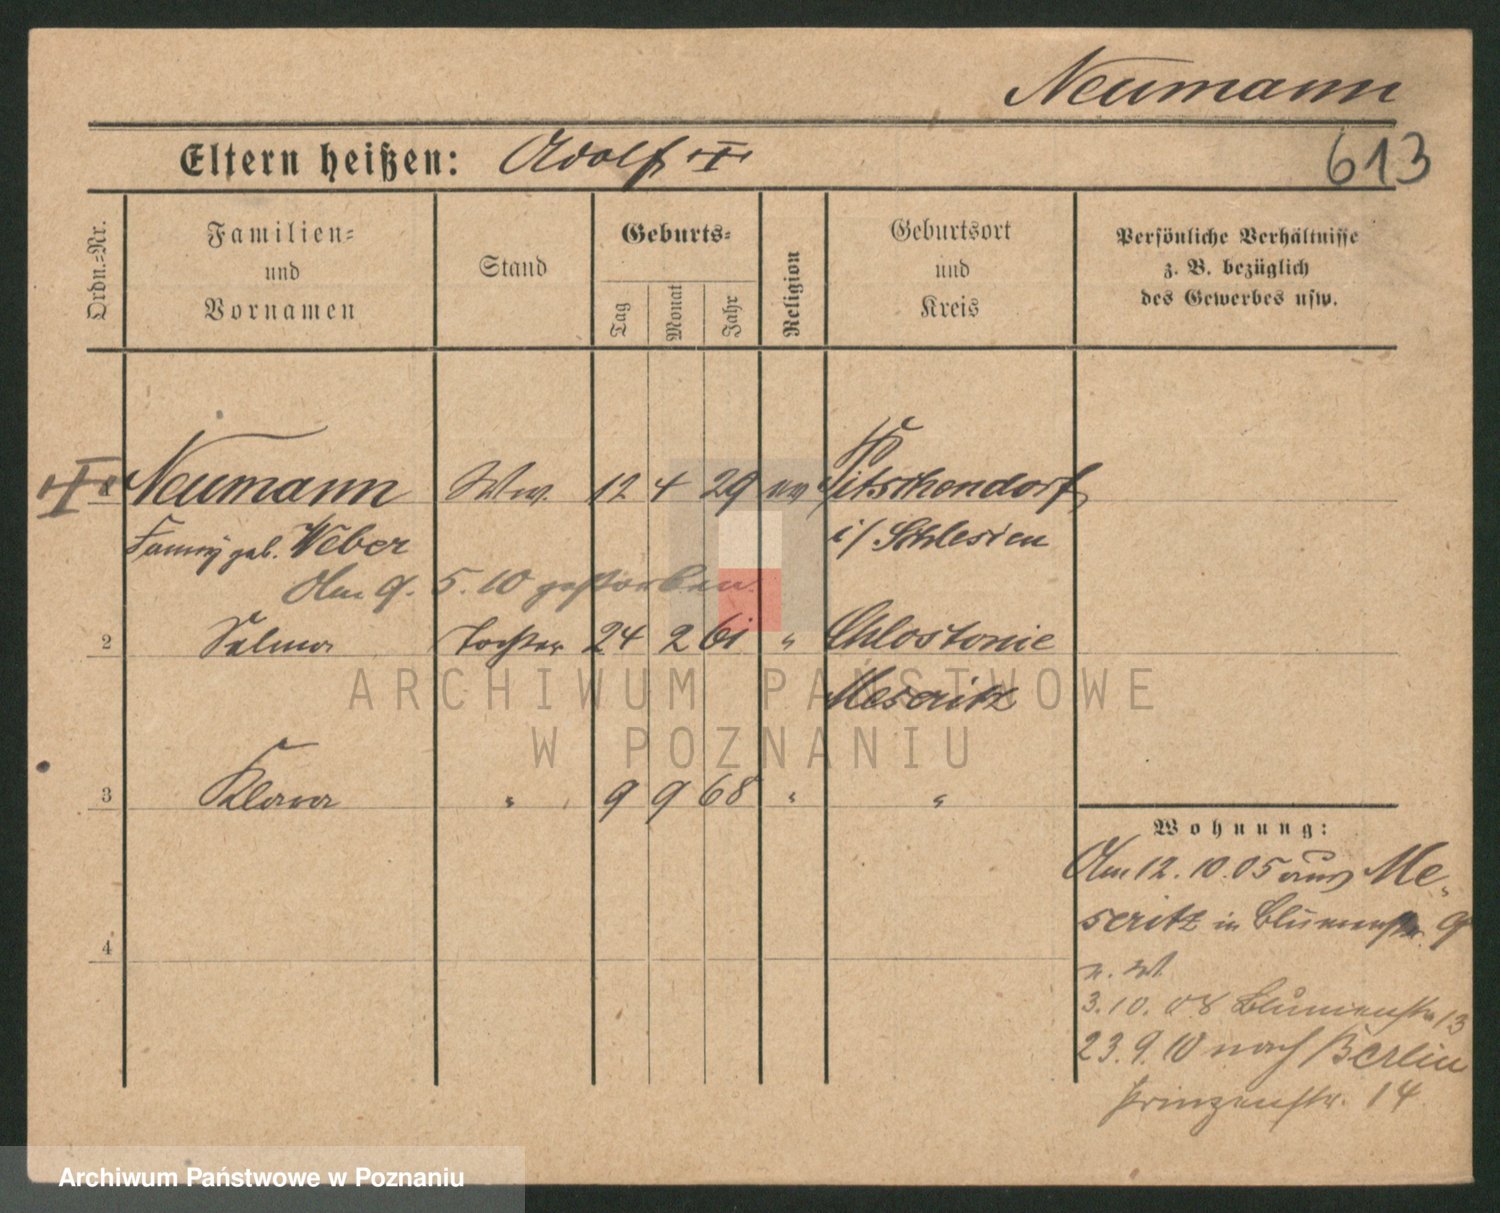 Neumann
Eltern heißen: Adolf
613
Ordn.-Nr.
Familien-
und
Vornamen
Stand
Geburts-
Tag
Monat
Jahr
Religion
Geburtsort
und
Kreis
Persönliche Verhältnisse
z. B. bezüglich
des Gewerbes usw.
1 Neumann Ww. 12 4 29 ev Pitschendorf
Fanny geb. Weber i/ Schlesien
Am 9. 5. 10 gestorben.
2 Selma Tochter 24 2 61 "
Meseritz
3 Klara " 9 9 68 " "
4
Wohnung:
Am 12. 10. 05 aus Me-
seritz in Blumenstr. 9
3. 10. 08 Blumenstr 13
23. 9. 10 nach Berlin
Prinzenstr. 14
ARCHIWUM PAŃSTWOWE
W POZNANIU
Archiwum Państwowe w Poznaniu